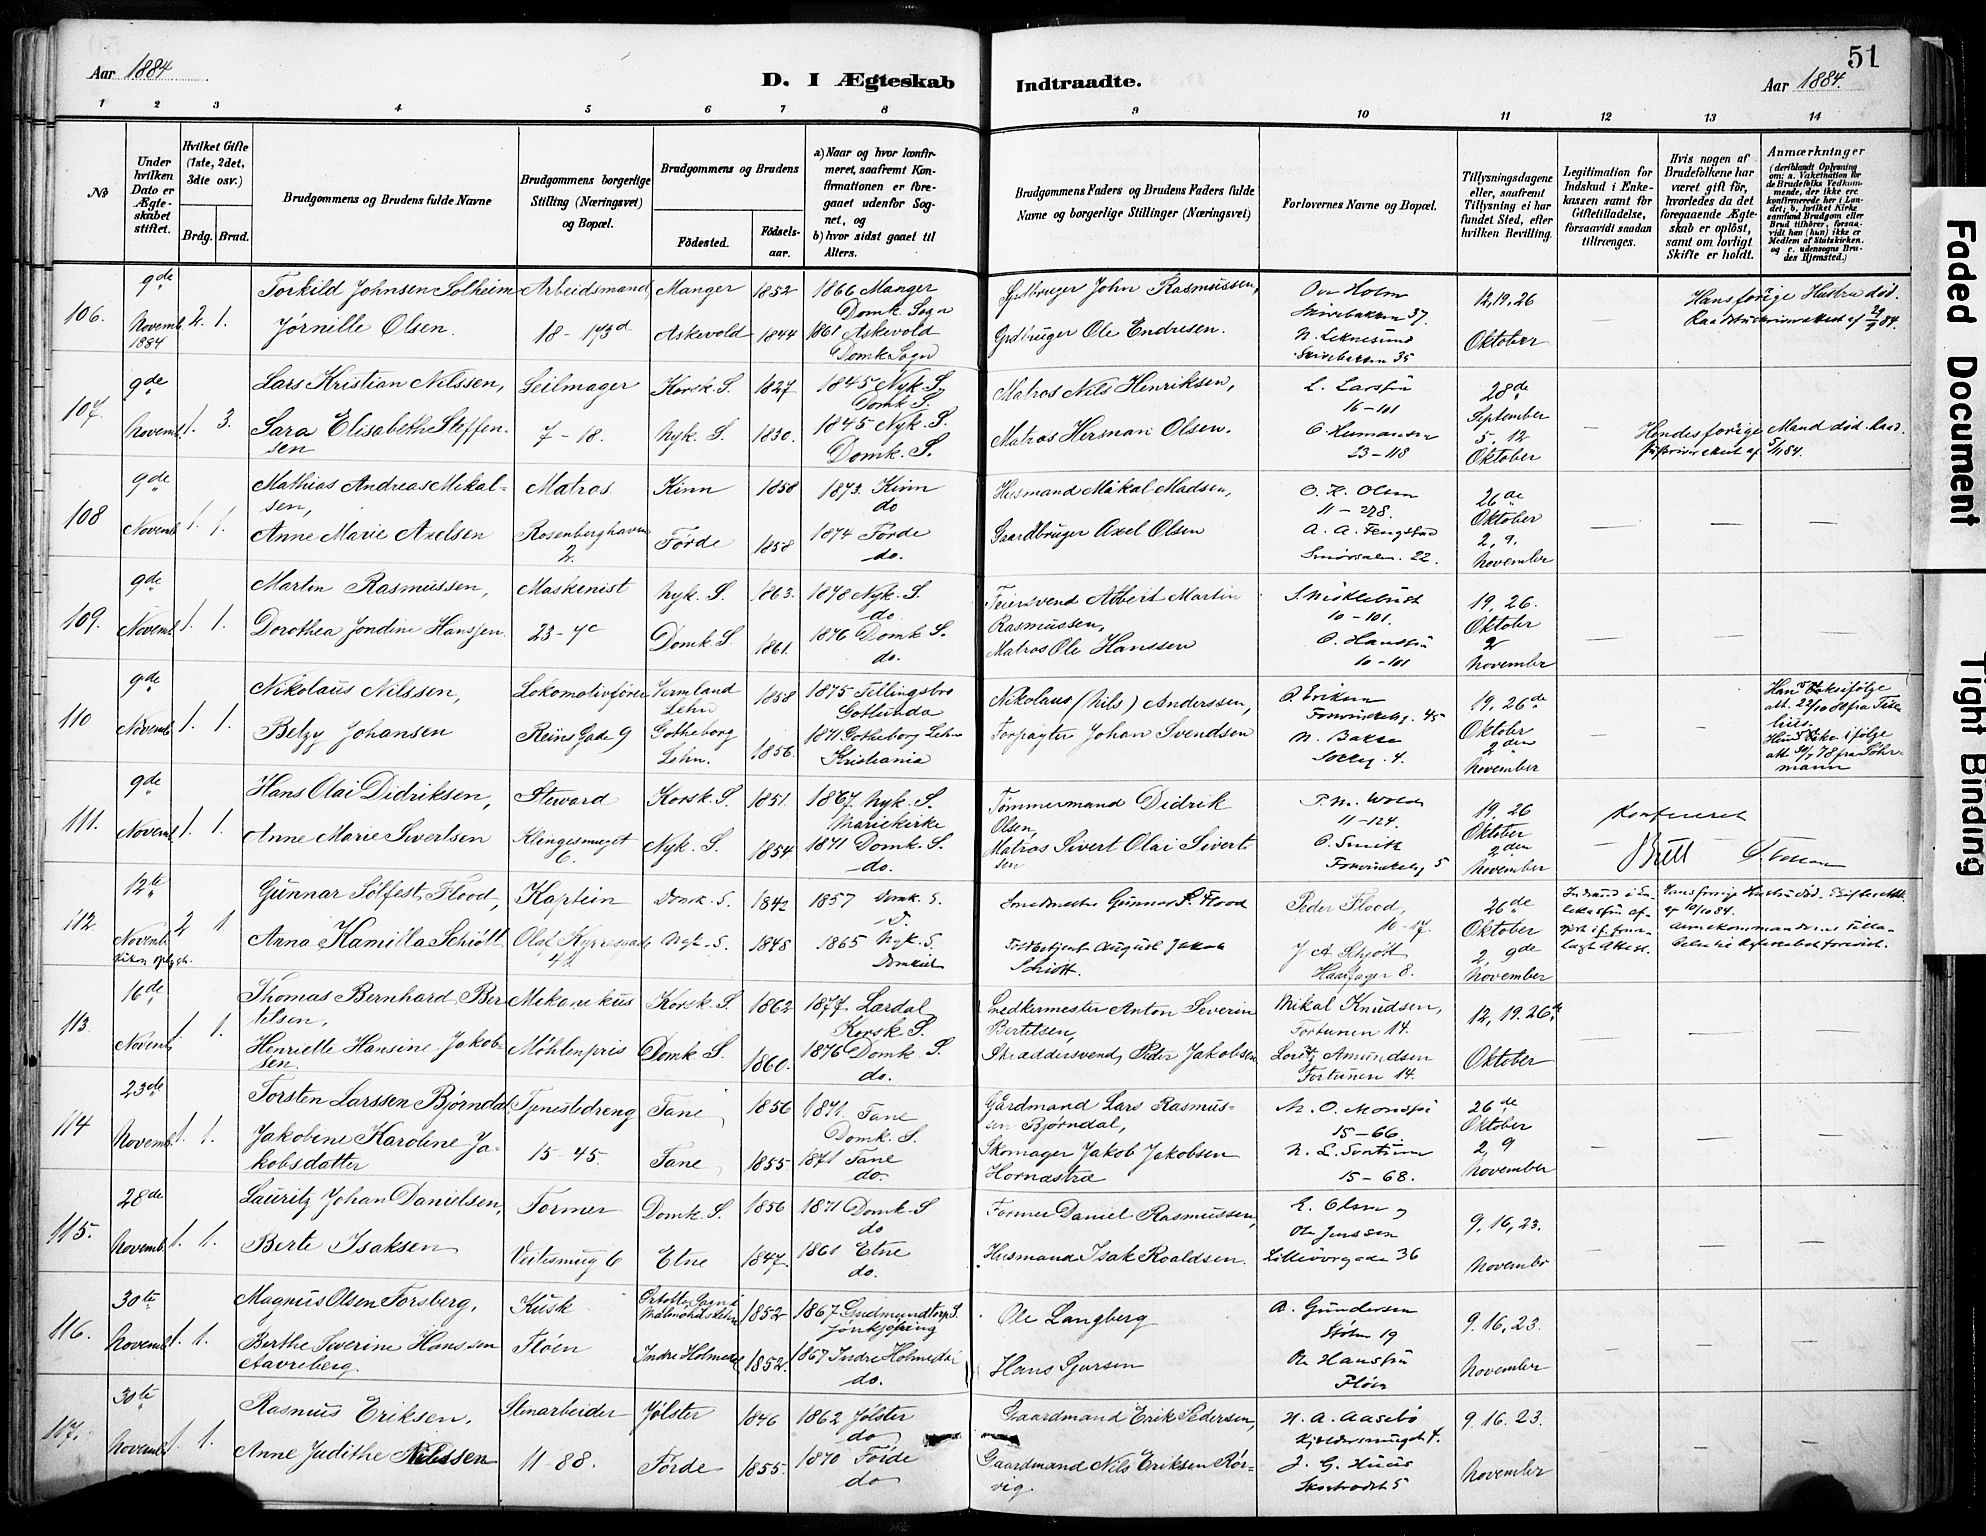 51
Aar 1884
D. I Ægteskab
Indtraadte.
Aar 1884.
1 2 3 4 5 6 7 8 9 10 11 12 13 14
No
Under hvilken Dato er Ægteskabet stiftet.
Hvilket Gifte (1ste, 2det, 3die osv.)
Brdg. Brud.
Brudgommens og Brudens fulde Navne
Brudgommens borgerlige Stilling (Næringsvei) og Bopæl.
Brudgommens og Brudens
Fødested.
Fødselsaar.
a) Naar og hvor konfirmeret, saafremt Konfirmationen er foregaaet udenfor Sognet, og
b) hvor sidst gaaet til Alters.
Brudgommens Faders og Brudens Faders fulde Navne og borgerlige Stillinger (Næringsvei)
Forlovernes Navne og Bopæl.
Tillysningsdagene eller, saafremt Tillysning ei har fundet Sted, efter hvilken Bevilling.
Legitimation for Indskud i Enkekassen samt for Giftetilladelse, forsaavidt saadan tiltrænges.
Hvis nogen af Brudefolkene har været gift før, hvorledes da det foregaaende Ægteskab er opløst, samt om lovligt Skifte er holdt.
Anmærkninger (deriblandt Oplysning om: a. Vakcination for de Brudefolks Vedkommende, der ikke ere konfirmerede her i Landet; b. hvilket Kirkesamfund Brudgom eller Brud tilhører, forsaavidt han (hun) ikke er Medlem af Statskirken, og c. udensogns Brudes Hjemsted.)
106. 9de Novemb. 1884 2. 1.
Torkild Johnsen Solheim Arbeidsmand Manger 1852 1866 Manger Domk. Sogn
Grdbruger John Rasmussen, Ole Holm Skivebakken 37. 12, 19, 26
Hans forige Hustru død.
Jørnille Olsen. 18-173d Askevold 1844 1861 Askevold Domk. Sogn
Grdbruger Ole Endresen. Skivebakken 35 Oktober
107. 9de Novemb. 1. 3.
Lars Kristian Nilssen, Seilmager Korsk. S. 1827 1845 Nyk. S. Domk. S.
Matros Nils Henriksen, 16-101 28de September
Sara Elisabethe Steffensen 7-18. Nyk. S. 1830. 1845 Nyk. S. Domk. S.
Matros Herman Olsen. 23-118 5. 12 Oktober
Hendes forige Mand død.
108 9de Novemb. 1. 1.
Mathias Andreas Mikalsen, Matros Kinn 1858 1873. Kinn do
Husmand Mikal Madsen, O. K. Olsen 11-278. 26de Oktober
Anne Marie Axelsen Rosenberghavn 2. Førde 1858 1874 Førde do.
Gaardbruger Axel Olsen A. A. Fengstad 22. 2, 9. November
109. 9de Novemb. 1. 1.
Martin Rasmussen, Maskenist Nyk. S. 1863. 1878 Nyk. S. do
Feiersvend Albert Martin Rasmussen, 10-101. 19, 26. Oktober
Dorothea Jondine Hanssen. 23-7c Domk. S. 1861. 1876 Domk. S. do.
Matros Ole Hanssen 10-101 2 November
110 9de Novemb. 1. 1.
Nikolaus Nilssen, Lokomotivfører Vermland Lehn 1858 1875 Fellingsbro Gotlunda
Nikolaus (Nils) Anderssen, 45 19, 26de Oktober
Betzy Johansen Reins Gade 9 Gotheborg Lehn. 1856. 1871 Gotheborg Lehn Kristiania
Forpagter Johan Svendsen N. Bakke 4. 2den November
111. 9de Novemb. 1. 1.
Hans Olai Didriksen, Steward Korsk. S. 1851. 1867 Nyk. S. Mariekirke
Tømmermand Didrik Olsen, P. M. Wold 11-124. 19, 26 Oktober
Konfereret
Anne Marie Sivertsen Klingesmuget 6. Nyk. S. 1854. 1871 Domk. S. do.
Matros Sivert Olai Sivertsen O. Smith 5 2den November
112. 12te Novemb. 2 1.
Gunnar Solfest Flood, Kaptein Domk. S. 1842 1857 Domk. S.
Smedmester Gunnar S. Flood Peder Flood, 10-17. 26de Oktober
Anna Kamilla Schiött Olaf Kyrresgade 42 Nyk. S. 1845 1865 Nyk. S. Domkirk
August Jakob Schiött. J A Schjött Haarfager 8. 2, 9de November
113. 16de Novemb. 1. 1.
Thomas Bernhard Bertelsen, Mekanikus Korsk. S. 1862 1877 Lærdal Korsk. S.
Snedkermester Anton Severin Bertelsen, Mikal Knudsen, Fortunen 14. 12, 19. 26de
Henriette Hansine Jakobsen. Møhlenpris Domk. S. 1860. 1876 Domk. S. do.
Skræddersvend Peder Jakobsen Loritz Amundsen Fortunen 14. Oktober
114 23de Novemb. 1. 1.
Torsten Larssen Bjørndal, Tjenestedreng Fane 1856 1871. Fane Domk. S.
Gårdmand Lars Rasmussen Bjørndal, 15-66. 26de Oktober
Jakobine Karoline Jakobsdatter 15-45. Fane 1855 1871 Fane do.
Skomager Jakob Jakobsen Hornastræ 15-68. 2, 9 November
115. 28de Novemb. 1. 1.
Lauritz Johan Danielsen, Former Domk. S. 1856 1871 Domk. S do
Former Daniel Rasmussen, E. Olsen 9, 16, 23.
Berte Isaksen Veitesmug 6 Etne 1847. 1861 Etne do.
Husmand Isak Roaldsen. Ole Jenssen Lilleøvregade 36 Novembr
116. 30te Novemb. 1. 1.
Magnus Olsen Forsberg, Kusk 1852 1867 Gudmundtorp S. Jønkjøping
Ole Langberg A. Gundersen Stølen 19 9. 16, 23.
Berthe Severine Hanssen Aavreberg. Fløen Indre Holmedal 1852. 1867 Indre Holmedal do.
Hans Sjursen Fløen November
117. 30te Novemb. 1. 1.
Rasmus Eriksen, Stenarbeider Jølster 1846 1862 Jølster do
Gaardmand Erik Pedersen, H. A. Aasebø 9. 16. 23.
Anne Judithe Nilssen 11-88. Førde 1855. 1870 Førde do
Gaardmand Nils Eriksen Rørvig. Skostrædet 5 November
Faded Document
Tight Binding